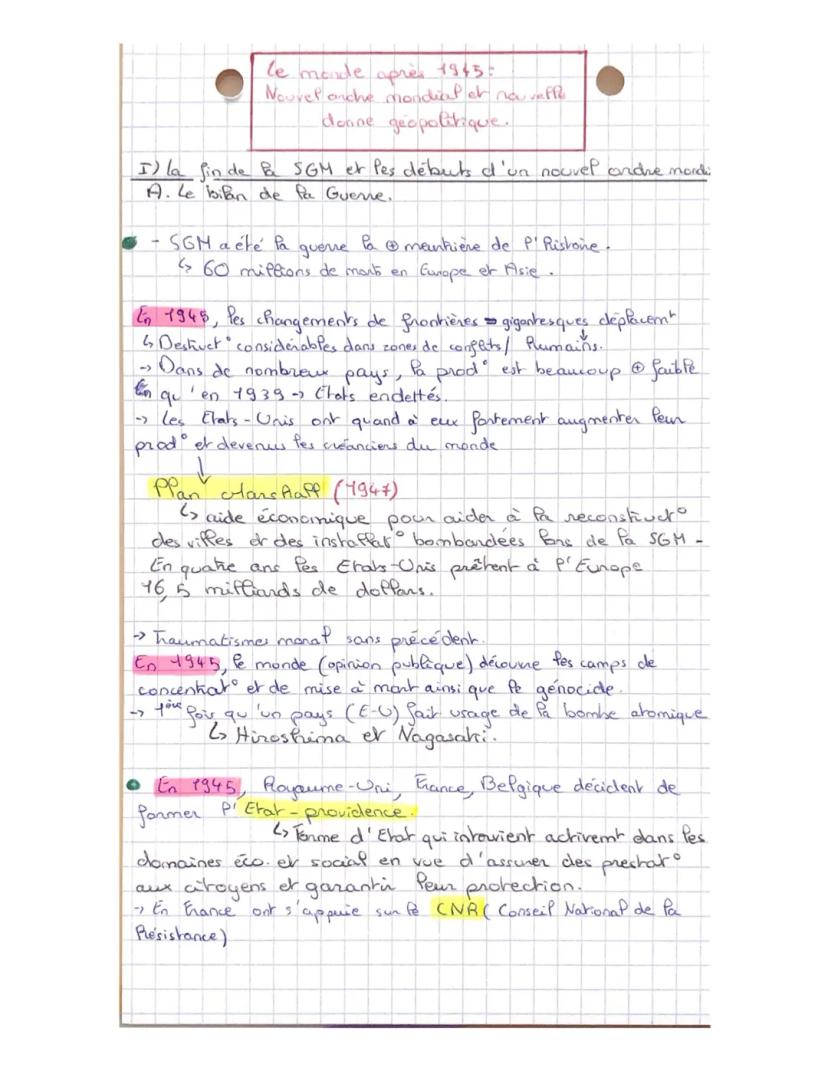 Le monde après 1945 :
Nouvel ordre mondial et nouvelle
donne géopolitique.
I) la fin de la SGM et les débuts d'un nouvel ordre mondi
A. Le bilan de la Guerre.
- SGM a été la guerre la ⊕ meurtrière de l'Histoire.
↳ 60 millions de morts en Europe et Asie.
En 1945, les changements de frontières = gigantesques déplacemt
↳ Destruct° considérables dans zones de conflits / humains.
-> Dans de nombreux pays, la prod° est beaucoup ⊕ faible
qu'en 1939 -> États endettés.
-> Les États-Unis ont quand à eux fortement augmenter leur
prod° et devenus les créanciers du monde
↓
Plan Marshall (1947)
↳ aide économique pour aider à la reconstruct°
des villes et des installat° bombardées lors de la SGM -
En quatre ans les Etats-Unis prêtent à l'Europe
16,5 milliards de dollars.
-> Traumatismes moral sans précédent.
En 1945, le monde (opinion publique) découvre les camps de
concentrat° et de mise à mort ainsi que le génocide.
-> 1ère fois qu'un pays (E-U) fait usage de la bombe atomique
↳ Hiroshima et Nagasaki.
En 1945, Royaume-Uni, France, Belgique décident de
former l'Etat-providence.
↳ Forme d'Etat qui intervient activemt dans les
domaines éco. et social en vue d'assurer des prestat°
aux citoyens et garantir leur protection.
-> En France ont s'appuie sur le CNR (Conseil National de la
Résistance)